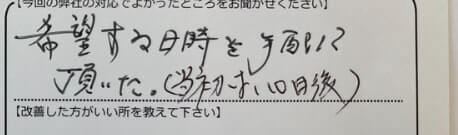 【今回の弊社の対応でよかったところをお聞かせください】
希望する日時を
頂いた。(当初は、10日後)
【改善した方がいい所を教えて下さい】